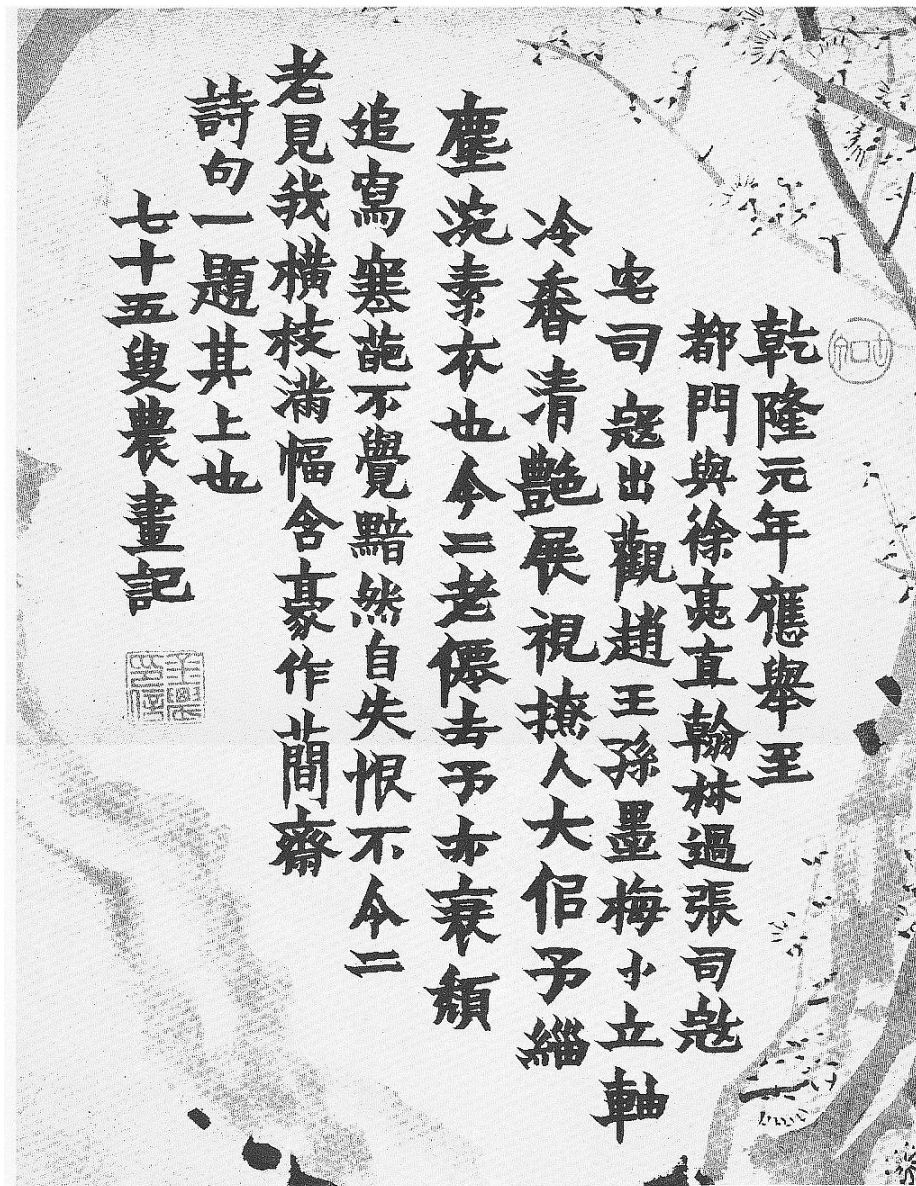 乾隆元年應舉至
都門與徐亮直翰林過張司寇
宅司寇出觀趙王孫墨梅小立軸
冷香清艷展視撩人大佀予緇
塵涴素衣也今二老僊去予亦衰頹
追寫寒葩不覺黯然自失恨不令二
老見我橫枝滿幅含豪作蕳齋
詩句一題其上也
七十五叟農畫記